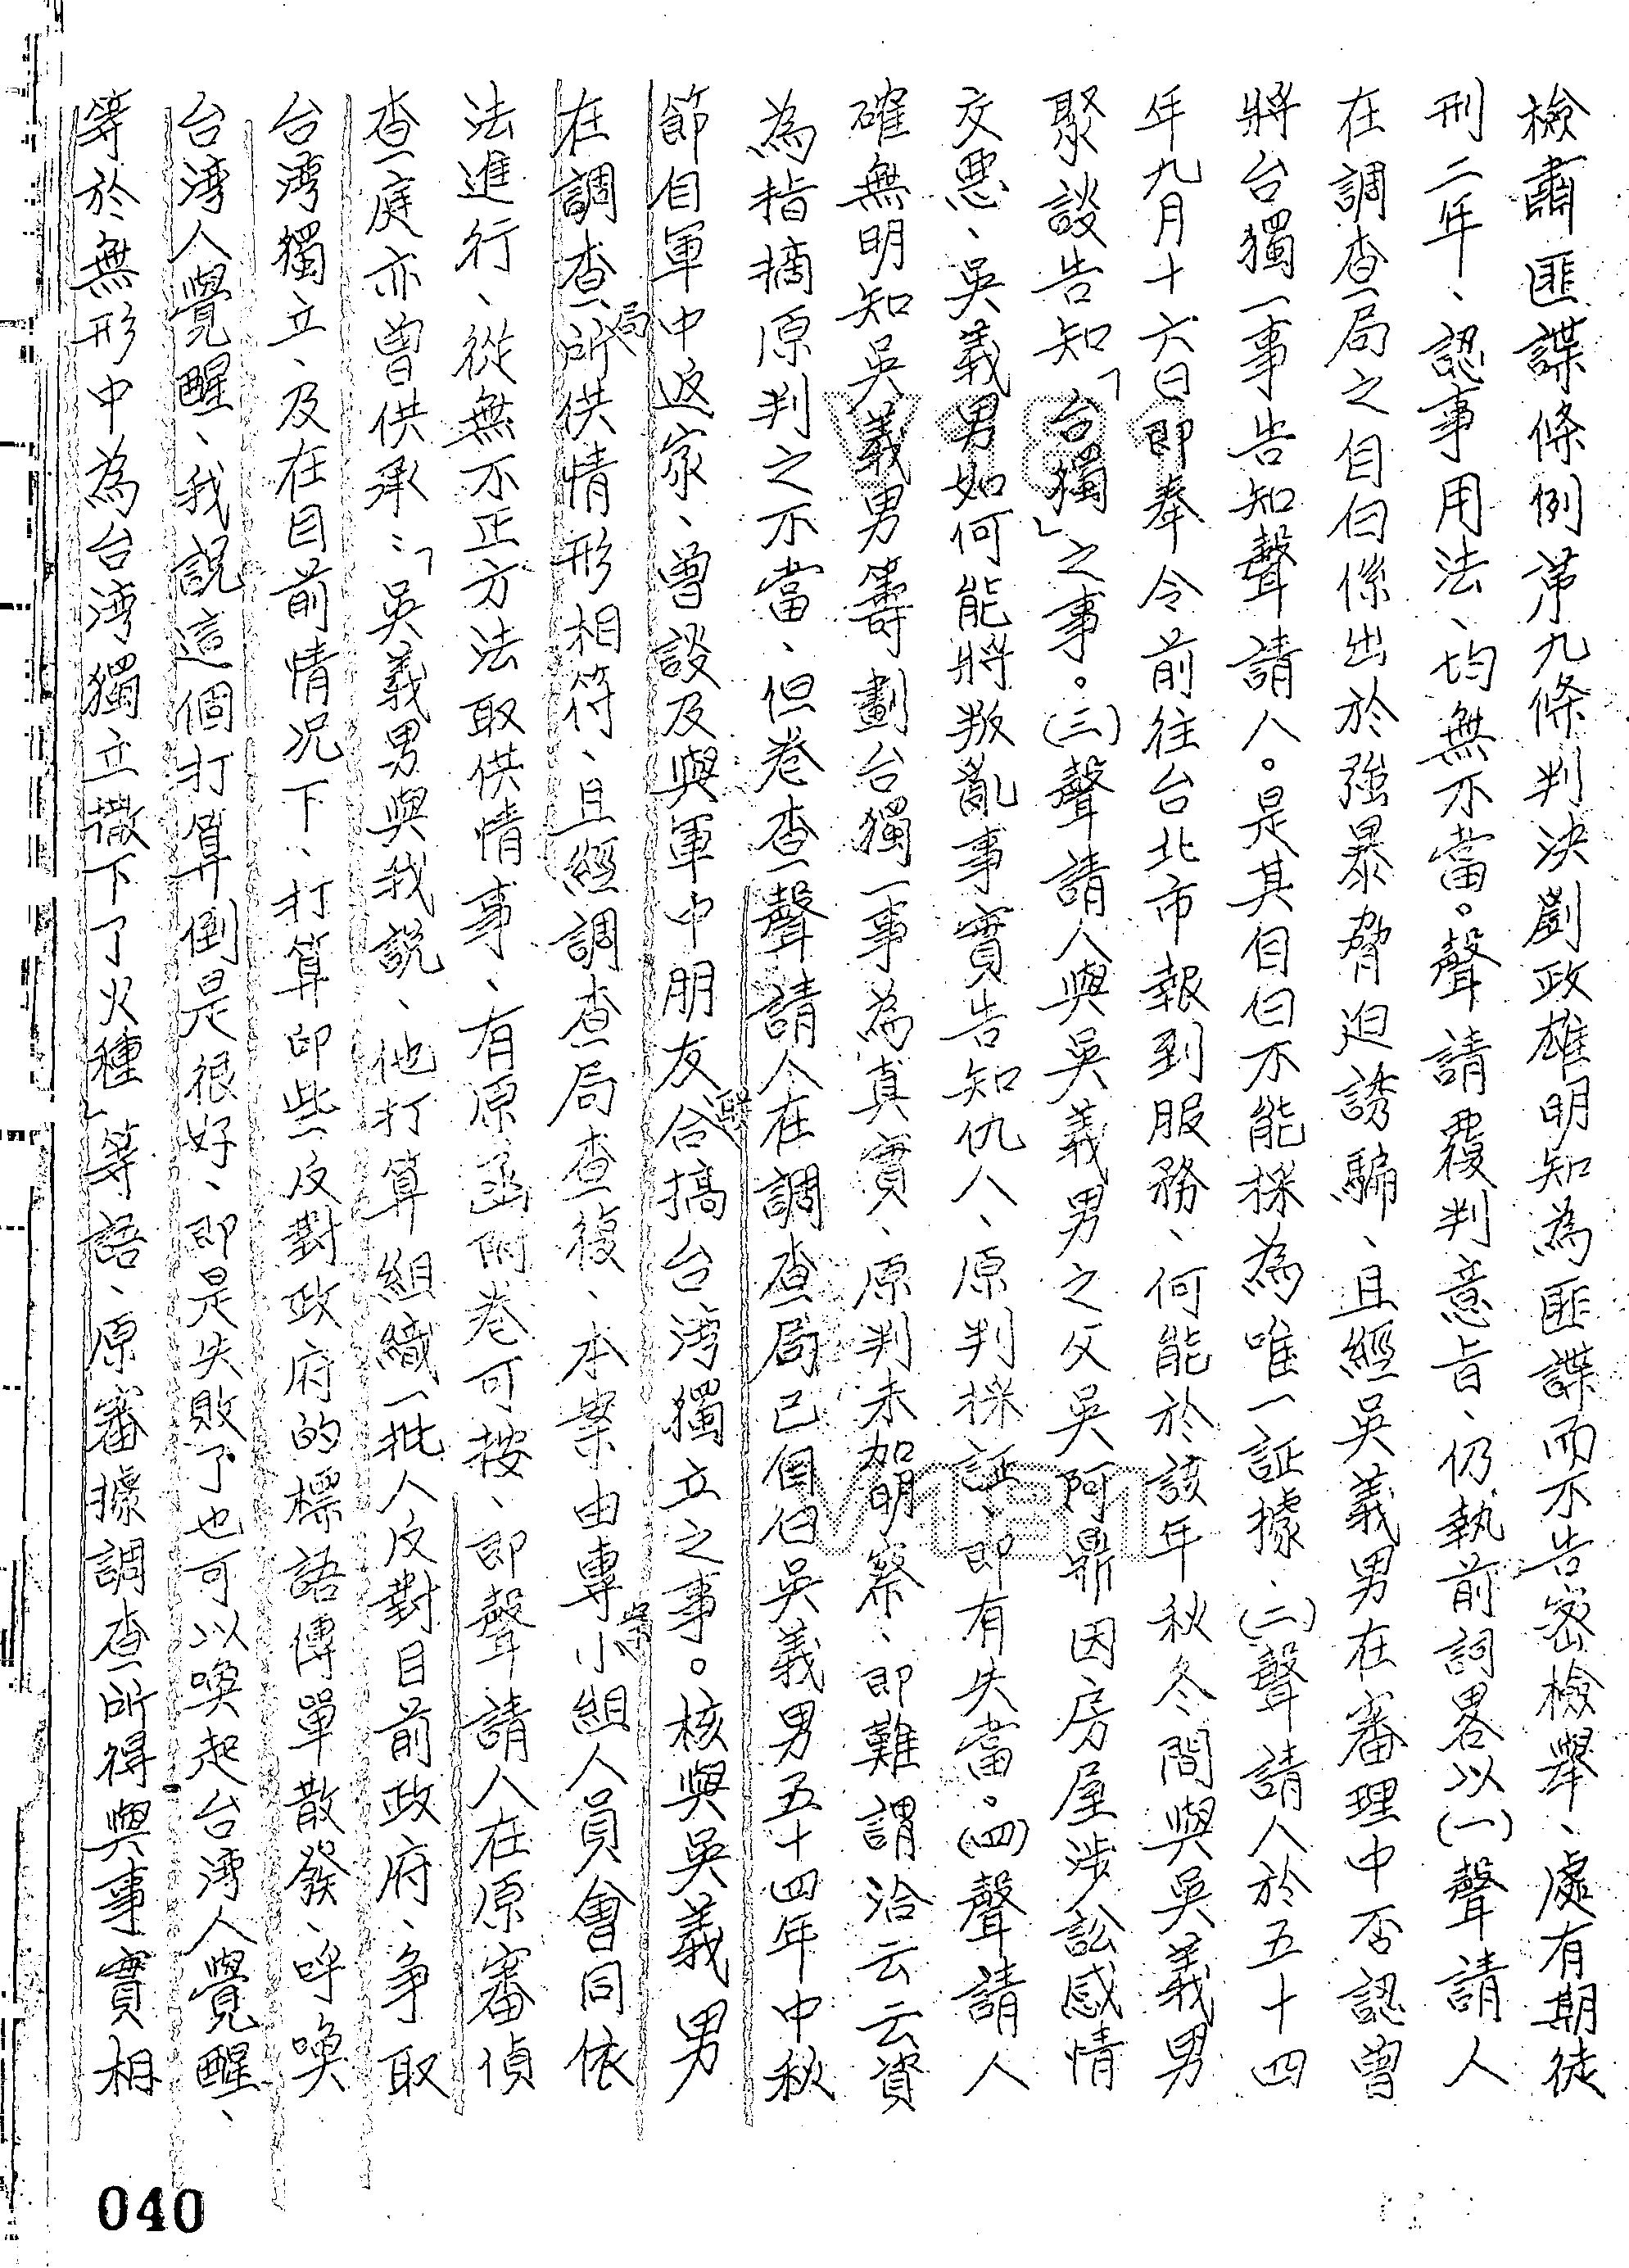 檢肅匪諜條例第九條判決劉政雄明知為匪諜而不告密檢舉、處有期徒
刑二年、認事用法、均無不當。聲請覆判意旨、仍執前詞畧以(一)聲請人
在調查局之自白係出於強暴脅迫誘騙、且經吳義男在審理中否認曾
將台獨一事告知聲請人。是其自白不能採為唯一証據、(二)聲請人於五十四
年九月十六日即奉令前往台北市報到服務、何能於該年秋冬間與吳義男
聚談告知「台獨」之事。(三)聲請人與吳義男之父吳阿鼎因房屋涉訟感情
交悪、吳義男如何能將叛亂事實告知仇人、原判採証、即有失當。(四)聲請人
確無明知吳義男籌劃台獨一事為真實、原判未加明察、即難謂洽云云資
為指摘原判之不當、但卷查聲請人在調查局已自白吳義男五十四年中秋
節自軍中返家、曾談及與軍中朋友聯合搞台湾獨立之事。核與吳義男
在調查局所供情形相符、且經調查局查復、本案由專案小組人員會同依
法進行、從無不正方法取供情事、有原函附卷可按、即聲請人在原審偵
查庭亦曾供承：「吳義男與我説、他打算組織一批人反對目前政府、争取
台湾獨立、及在目前情況下、打算印些反對政府的標語傳單散發、呼喚
台湾人覺醒、我説這個打算倒是很好、即是失敗了也可以喚起台湾人覺醒、
等於無形中為台湾獨立撒下了火種」等語、原審據調查所得與事實相
040
V181
V181